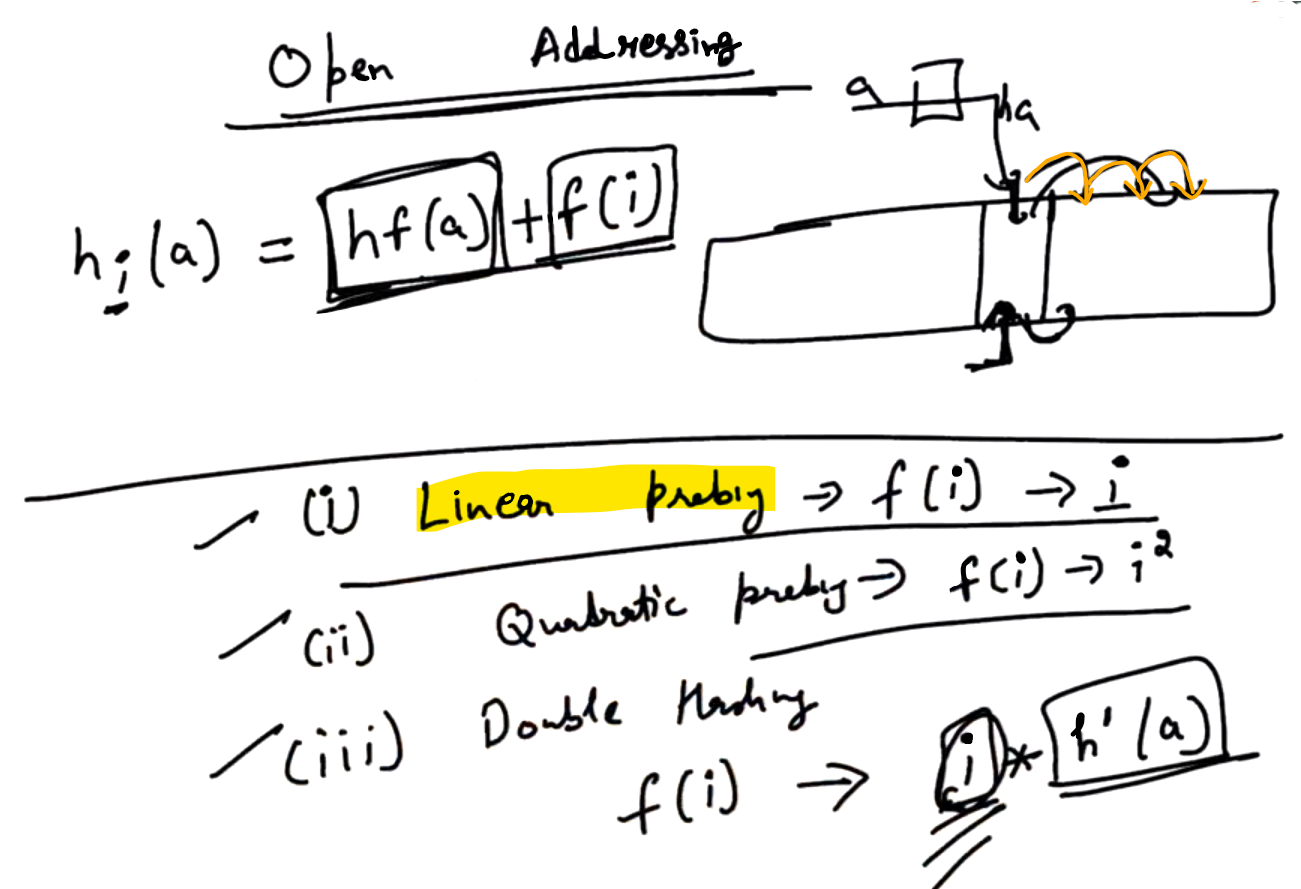 Open Addressing
a
ha
h_i(a) = hf(a) + f(i)
(i) Linear probing → f(i) → i
(ii) Quadratic probing → f(i) → i²
(iii) Double Hashing
f(i) → i * h'(a)